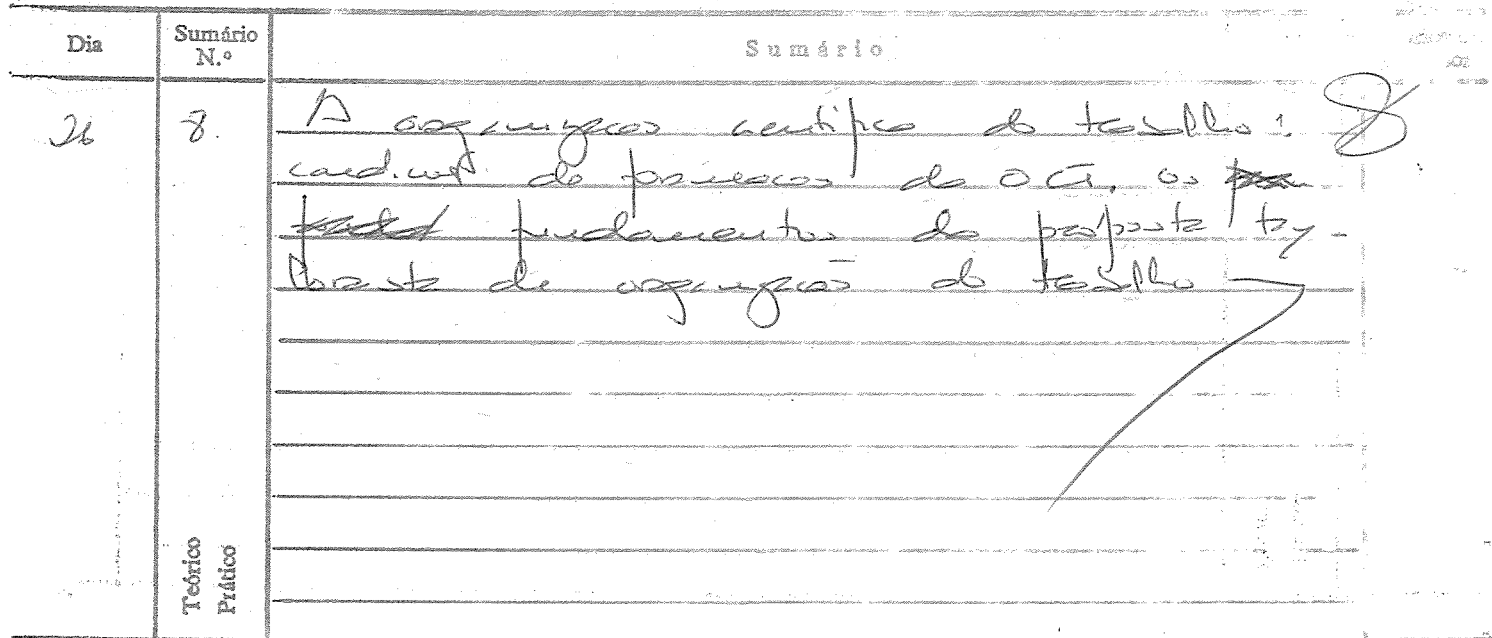 Dia Sumário N.º Sumário
26 8. A organização científica do trabalho: 8
condições de formação da O.C.T. os
fundamentos da proposta tay-
lorista de organização do trabalho
Teórico
Prático